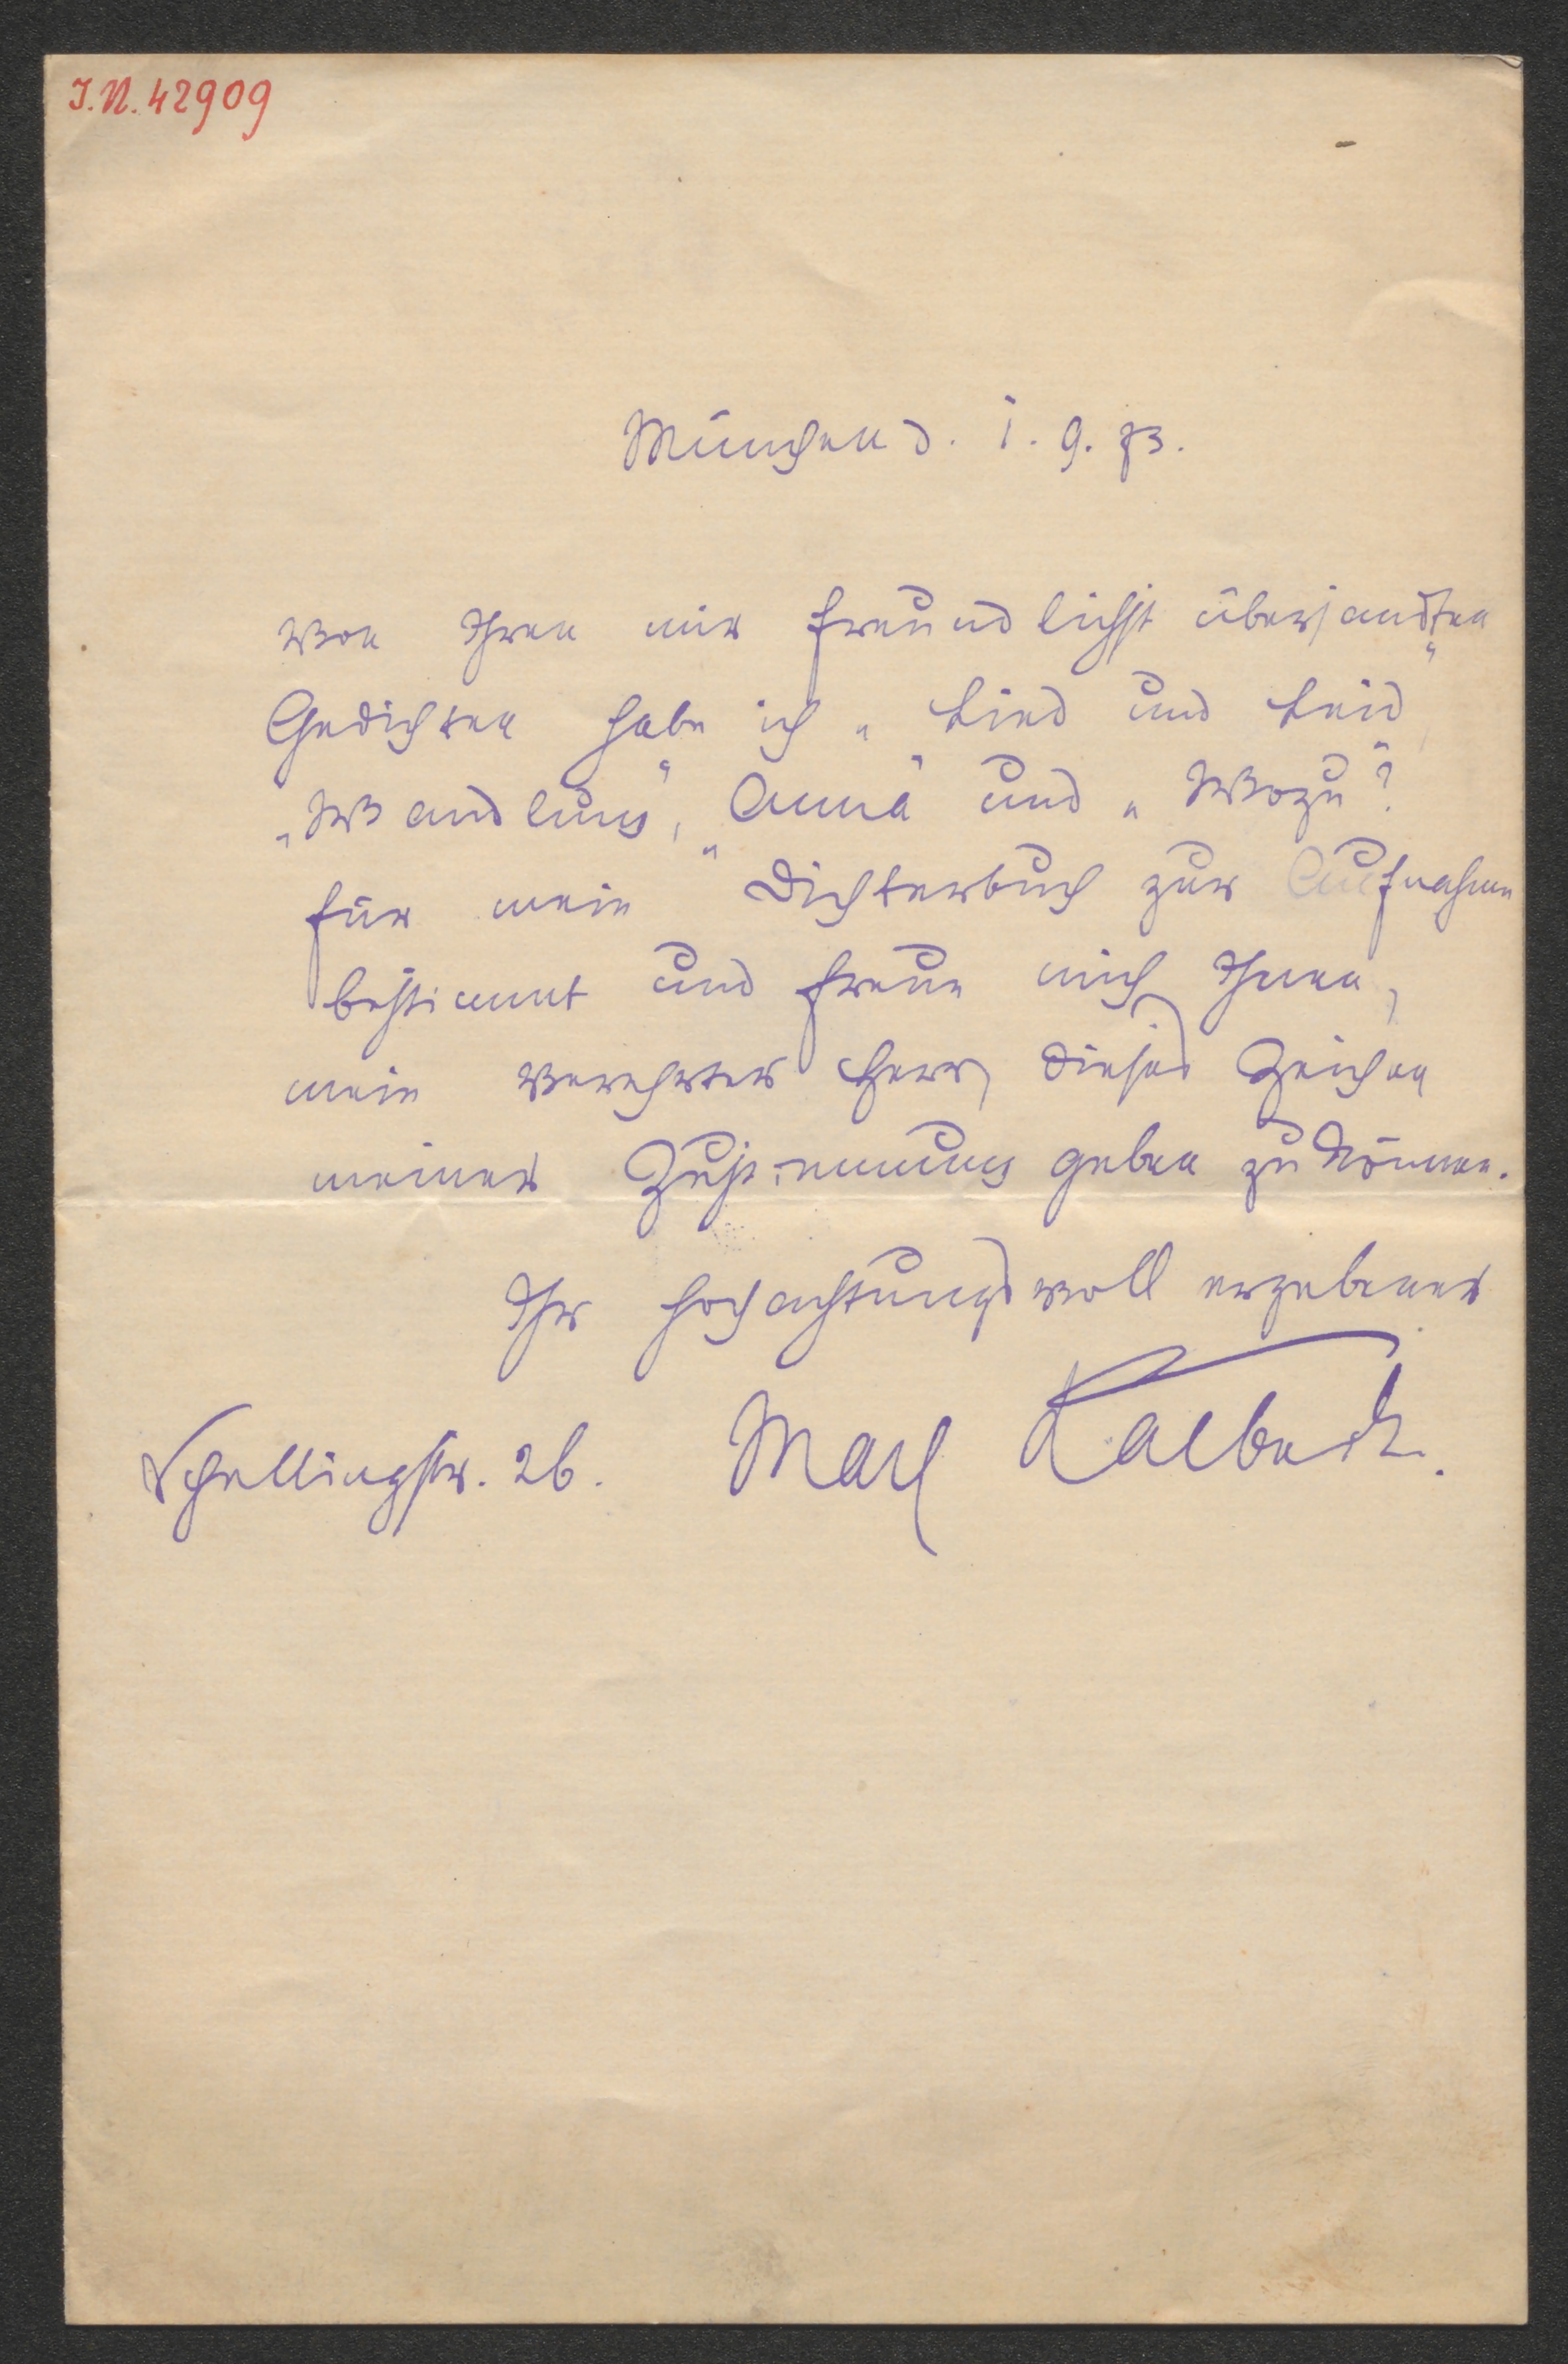 I.N. 42909
München d. 1. 9. 73.
Von Ihren mir freundlichst übersandten
Gedichten habe ich „Lied und Leid“,
„Wandlung“, „Anna“ und „Wozu?“
für mein Dichterbuch zur Aufnahme
bestimmt und freue mich Ihnen,
mein verehrter Herr, dieses Zeichen
meiner Zustimmung geben zu können.
Ihr hochachtungsvoll ergebener
Schellingstr. 26. Max Kalbeck.